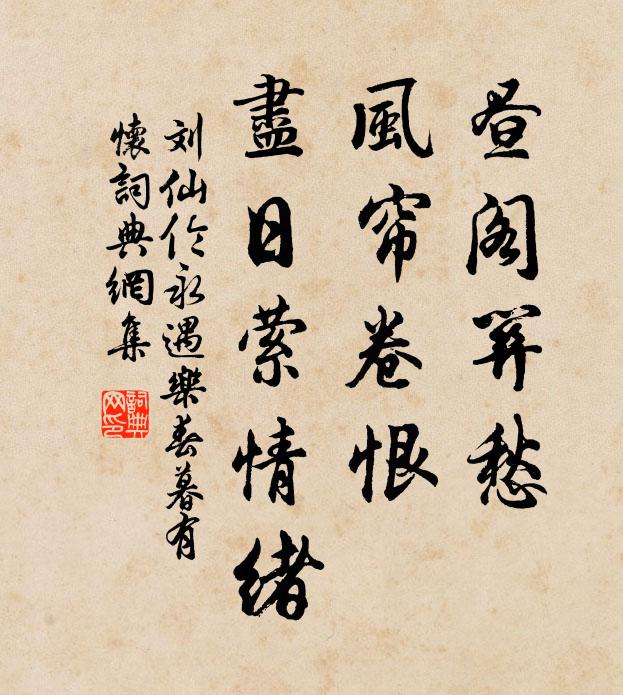 畫阁関愁
風帘卷恨
盡日萦情緒
刘仙伦永遇樂春暮有
懷詞典網集
詞典网印